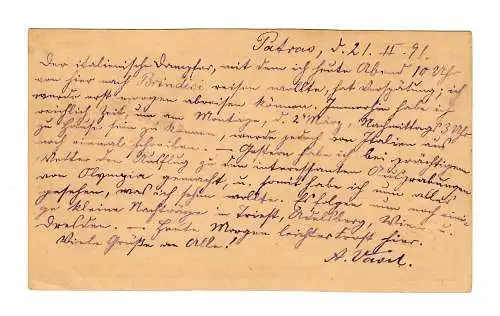 Patras, d. 21. II. 91.
Der italienische Dampfer, mit dem ich heute Abend 10 Uhr
von hier nach Brindisi reisen wollte, hat Verspätung; ich
werde erst morgen abreisen können. Immerhin habe ich
reichlich Zeit, um am Montag, d. 2. März, Nachmittags 3 Uhr
zu Hause sein zu können, werde jedoch von Italien aus
noch einmal schreiben. — Gestern habe ich bei prächtigem
Wetter den Ausflug zu den interessanten Ausgrabungen
von Olympia gemacht, u. somit habe ich u. alles
gesehen, was ich sehn wollte. Es folgen nun noch eini-
ge kleine Nachträge in Triest, Adelsberg, Wien u.
Dresden. — Heute Morgen leichter Frost hier.
Viele Grüße an Alle!
A.